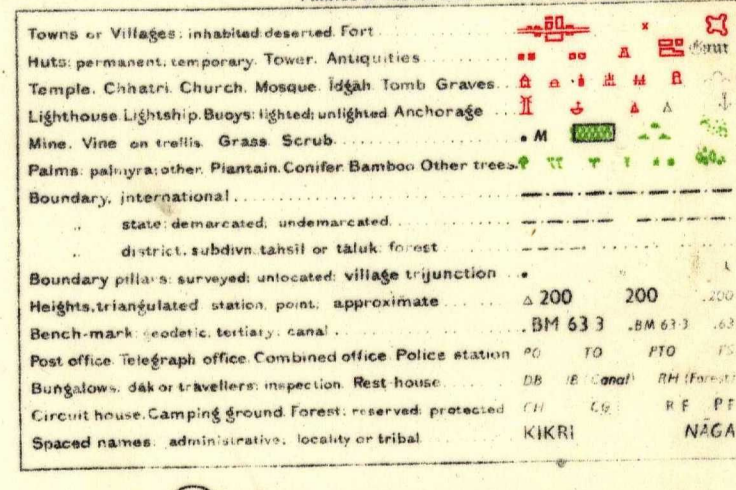 Towns or Villages: inhabited: deserted. Fort
Huts: permanent; temporary. Tower. Antiquities
Temple. Chhatri. Church. Mosque. Īdgāh. Tomb Graves
Lighthouse. Lightship. Buoys: lighted; unlighted Anchorage
Mine. Vine on trellis. Grass. Scrub • M
Palms: palmyra; other. Plantain. Conifer. Bamboo. Other trees.
Boundary, international
„ state: demarcated; undemarcated
„ district, subdivn. tahsil or tāluk; forest
Boundary pillars: surveyed; unlocated; village trijunction
Heights, triangulated station; point; approximate △ 200 200 .200
Bench-mark: geodetic; tertiary; canal . BM 63·3 .BM 63·3 .63
Post office. Telegraph office. Combined office. Police station PO TO PTO PS
Bungalows, dāk or travellers; inspection. Rest-house DB IB (Canal) RH (Forest
Circuit house. Camping ground. Forest: reserved; protected CH CG RF PF
Spaced names: administrative; locality or tribal KIKRI NĀGA